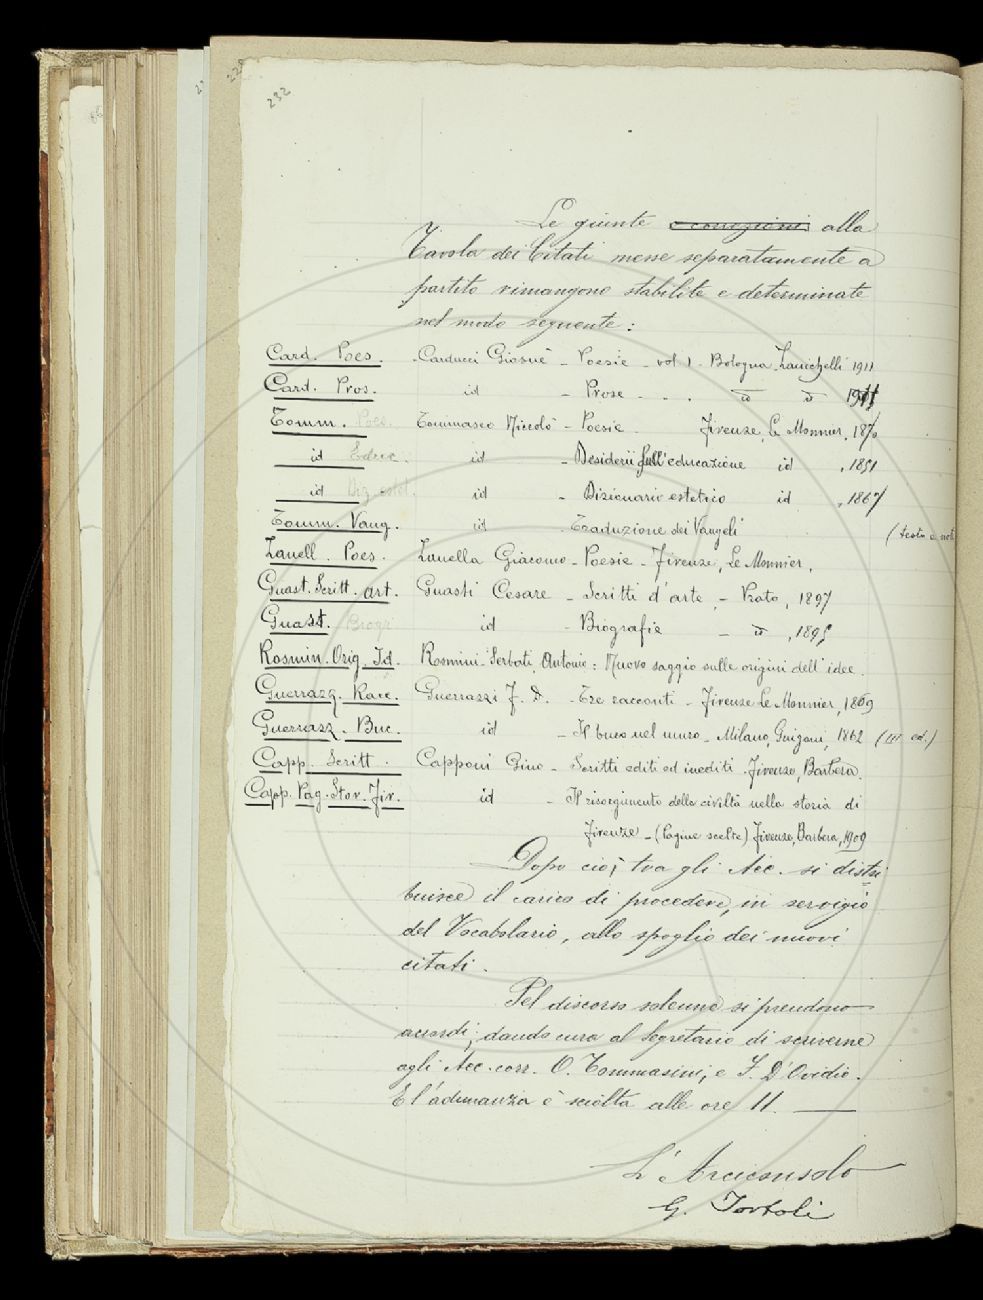 232
Le giunte e correzioni alla
Tavola dei Citati messe separatamente a
partito rimangono stabilite e determinate
nel modo seguente:
Card. Poes. Carducci Giosuè - Poesie - vol. 1 - Bologna Zanichelli 1911
Card. Pros. id - Prose - . . id id
Tomm. Poes. Tommaseo Niccolò - Poesie. Firenze, Le Monnier, 1870
id Educ. id - Desiderii sull'educazione id , 1851
id Diz. estet. id - Dizionario estetico id , 1867
Tomm. Vang. id Traduzione dei Vangeli (testo e not
Zanell. Poes. Zanella Giacomo - Poesie - Firenze, Le Monnier,
Guast. Scritt. art. Guasti Cesare - Scritti d'arte - Prato, 1897
Guast. Biogr. id - Biografie - id , 1895
Rosmin. Orig. Id. Rosmini-Serbati Antonio: Nuovo saggio sulle origini dell'idee.
Guerrazz. Racc. Guerrazzi F. D. - Tre racconti - Firenze Le Monnier, 1869
Guerrazz. Buc. id - Il buco nel muro - Milano, Guigoni, 1862 (III ed.)
Capp. Scritt. Capponi Gino - Scritti editi ed inediti. Firenze, Barbera.
Capp. Pag. Stor. Fir. id - Il risorgimento della civiltà nella storia di
Firenze - (Pagine scelte) Firenze, Barbera, 1909
Dopo ciò, tra gli Acc. si distri
buisce il carico di procedere, in servigio
del Vocabolario, allo spoglio dei nuovi
citati.
Pel discorso solenne si prendono
accordi; dando cura al Segretario di scriverne
agli Acc. corr. O. Tommasini, e F. D'Ovidio.
E l'adunanza è sciolta alle ore 11.
L'Arciconsolo
G. Tortoli